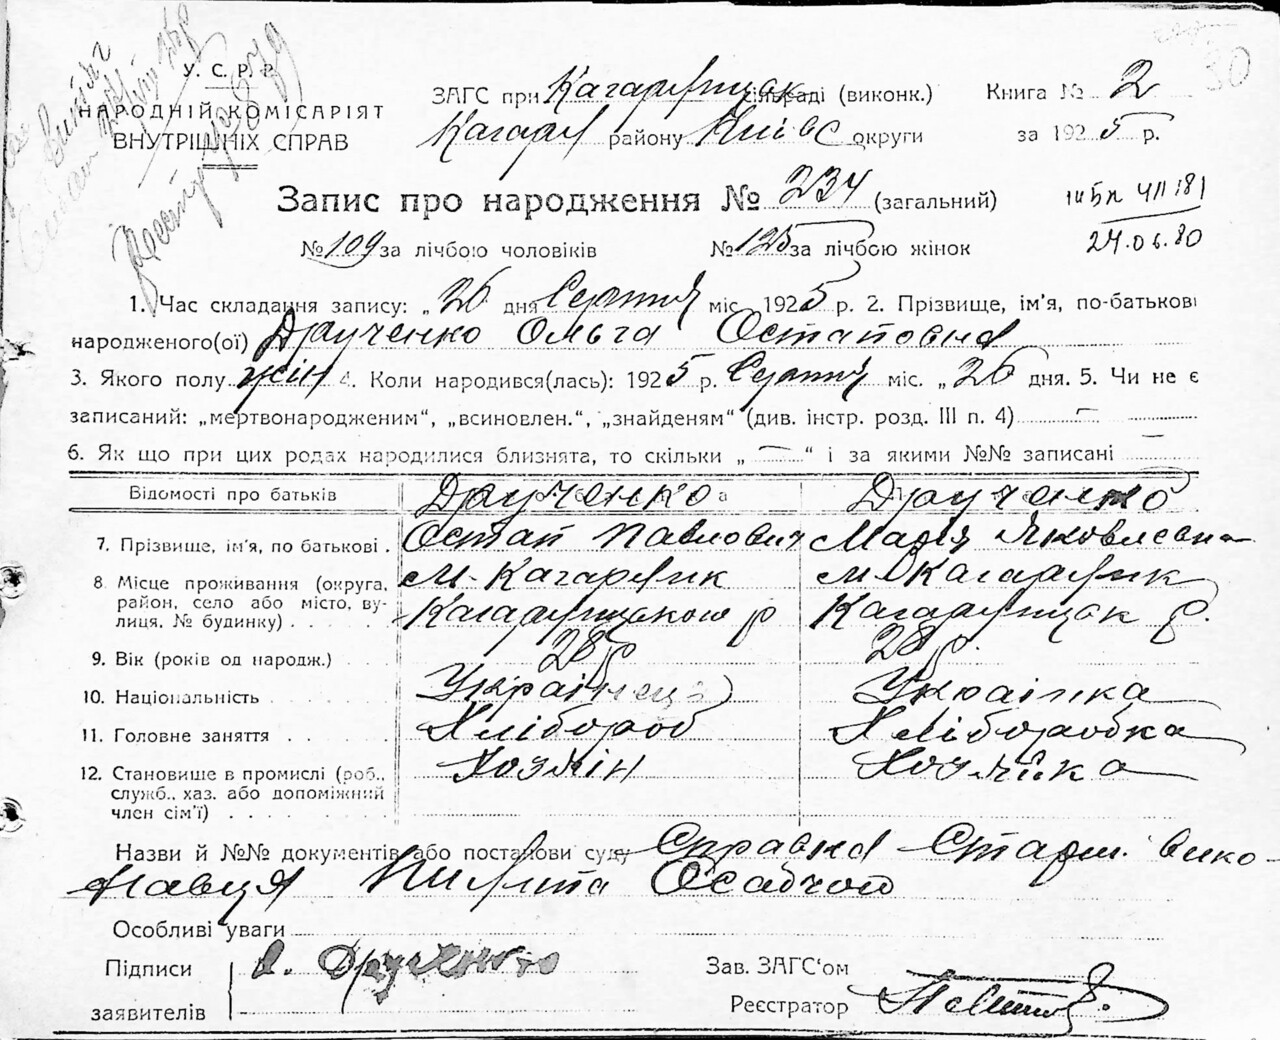 У. С. Р. Р.
НАРОДНІЙ КОМІСАРІЯТ
ВНУТРІШНІХ СПРАВ
ЗАГС при Кагарлицьк сільраді (виконк.) Книга № 2
Кагарл району Київс округи за 1925 р.
30
Запис про народження № 234 (загальний)
№ 109 за лічбою чоловіків № 125 за лічбою жінок
24.06.80
1. Час складання запису: „26 дня Серпня міс. 1925 р. 2. Прізвище, ім'я, по-батькові
народженого(ої) Друченко Ольга Остаповна
3. Якого полу жін 4. Коли народився(лась): 1925 р. Серпня міс. „26 дня. 5. Чи не є
записаний: „мертвонародженим“, „всиновлен.“, „знайденям“ (див. інстр. розд. III п. 4) —
6. Як що при цих родах народилися близнята, то скільки „ — “ і за якими №№ записані —
Відомості про батьків Друченко Друченко
7. Прізвище, ім'я, по батькові . Остап Павлович Марія Яковлевна
8. Місце проживання (округа, м. Кагарлик м. Кагарлик
район, село або місто, ву- Кагарлицького р Кагарлицьк р.
лиця, № будинку) . . . . .
9. Вік (років од народж.) . . . 28 р 28 р.
10. Національність . . . . . . Українець Українка
11. Головне заняття . . . . . Хлібороб Хліборобка
12. Становище в промислі (роб., Хозяїн Хозяйка
служб., хаз. або допоміжний
член сім'ї) . . . . . . . .
Назви й №№ документів або постанови суду Справка Старш. вико-
навця Осадчого
Особливі уваги
Підписи О. Друченко Зав. ЗАГС‘ом
заявителів Реєстратор